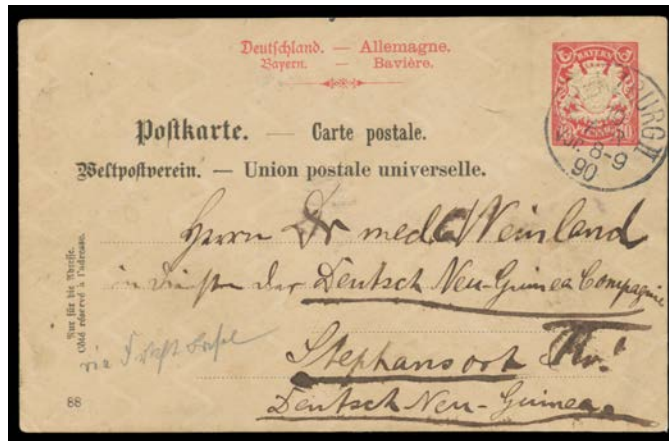 Deutschland. — Allemagne.
Bayern. — Bavière.
BAYERN
BURG II
VOR. 8-9
90
Postkarte. — Carte postale.
Weltpostverein. — Union postale universelle.
Herrn Dr med Weinland
in Diensten der Deutsch Neu-Guinea Compagnie
Stephansort
Deutsch Neu-Guinea.
Nur für die Adresse.
Côté réservé à l'adresse.
via
88